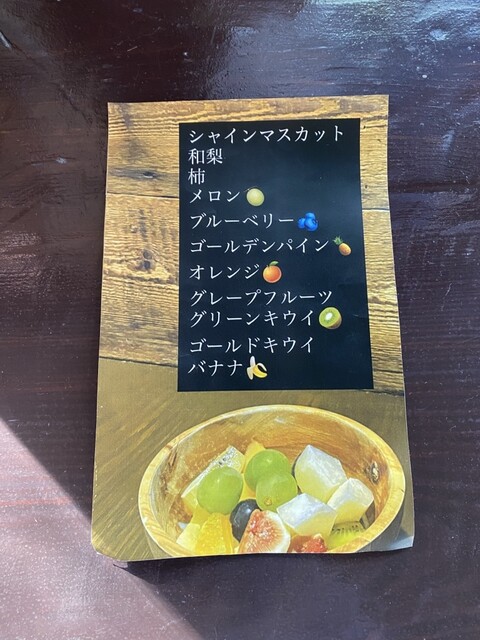 シャインマスカット
和梨
柿
メロン🍈
ブルーベリー🫐
ゴールデンパイン🍍
オレンジ🍊
グレープフルーツ
グリーンキウイ🥝
ゴールドキウイ
バナナ🍌